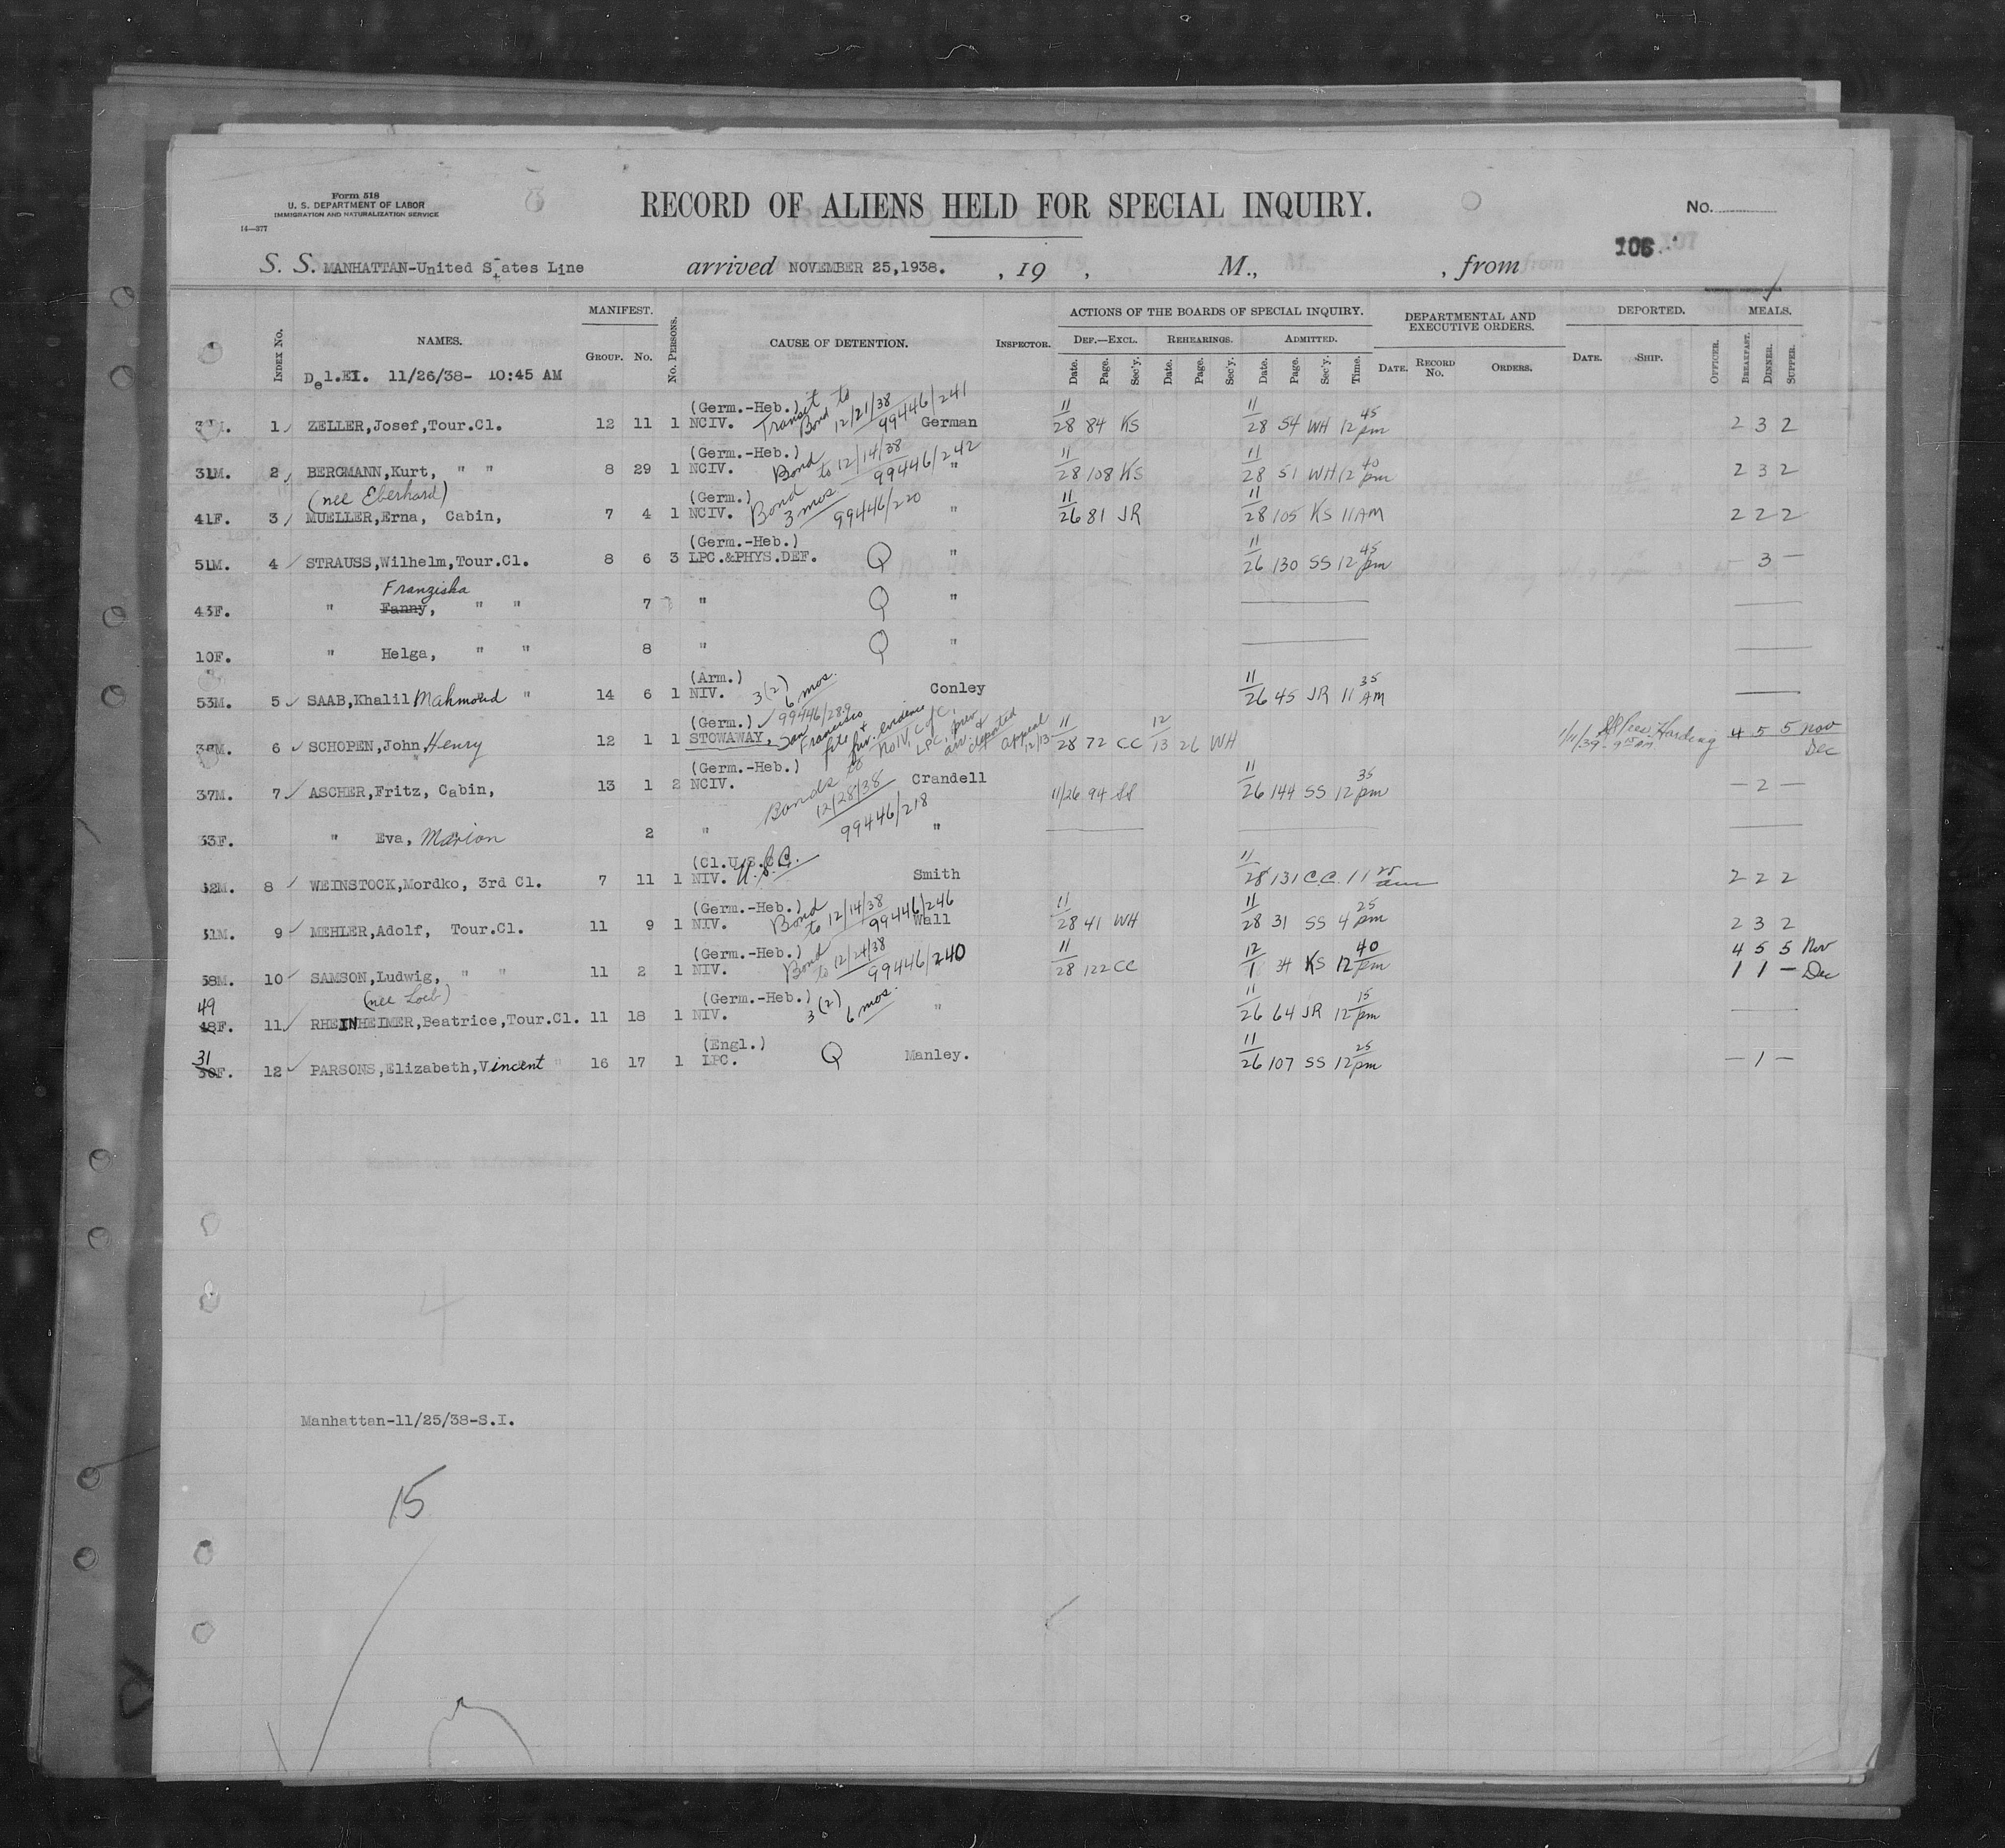 Form 518
U. S. DEPARTMENT OF LABOR
IMMIGRATION AND NATURALIZATION SERVICE
14—377
RECORD OF ALIENS HELD FOR SPECIAL INQUIRY.
No.
106
S. S. MANHATTAN-United States Line arrived NOVEMBER 25,1938. , 19 , M., , from
INDEX NO. NAMES. MANIFEST. GROUP. NO. NO. PERSONS. CAUSE OF DETENTION. INSPECTOR. ACTIONS OF THE BOARDS OF SPECIAL INQUIRY. DEPARTMENTAL AND EXECUTIVE ORDERS. DEPORTED. MEALS.
DEF.—EXCL. REHEARINGS. ADMITTED.
Date. Page. Sec'y. Date. Page. Sec'y. Date. Page. Sec'y. Time. DATE. RECORD NO. ORDERS. DATE. SHIP. OFFICER. BREAKFAST. DINNER. SUPPER.
Del.EI. 11/26/38- 10:45 AM
1 ZELLER,Josef,Tour.Cl. 12 11 1 (Germ.-Heb.) NCIV. Transit Bond to 12/21/38 99446/241 German 11/28 84 KS 11/28 54 WH 12 45 pm 2 3 2
31M. 2 BERGMANN,Kurt, " " 8 29 1 (Germ.-Heb.) NCIV. Bond to 12/14/38 99446/242 " 11/28 108 KS 11/28 51 WH 12 40 pm 2 3 2
(nee Eberhard)
41F. 3 MUELLER,Erna, Cabin, 7 4 1 (Germ.) NCIV. Bond 3 mos 99446/220 " 11/26 81 JR 11/28 105 KS 11 AM 2 2 2
51M. 4 STRAUSS,Wilhelm,Tour.Cl. 8 6 3 (Germ.-Heb.) LPC.&PHYS.DEF. Q " 11/26 130 SS 12 45 pm 3 —
Franziska
43F. " Fanny, " " 7 " Q "
10F. " Helga, " " 8 " Q "
53M. 5 SAAB,Khalil Mahmoud " 14 6 1 (Arm.) NIV. 3(2) 6 mos. Conley 11/26 45 JR 11 35 AM
38M. 6 SCHOPEN,John Henry 12 1 1 (Germ.) STOWAWAY, 99446/289 San Francisco file + fur. evidence no IV, C of C, LPC, prev arr. & deported appeal 12/13 11/28 72 CC 12/13 26 WH 1/11/39 Harding 4 5 5 Nov
Dec
37M. 7 ASCHER,Fritz, Cabin, 13 1 2 (Germ.-Heb.) NCIV. Bonds to 12/28/38 99446/218 Crandell 11/26 94 SS 11/26 144 SS 12 35 pm — 2 —
33F. " Eva, Marion 2 " "
52M. 8 WEINSTOCK,Mordko, 3rd Cl. 7 11 1 (Cl.U.S.C.) NIV. U.S.C. Smith 11/28 131 C.C. 11 25 am 2 2 2
51M. 9 MEHLER,Adolf, Tour.Cl. 11 9 1 (Germ.-Heb.) NIV. Bond to 12/14/38 99446/246 Wall 11/28 41 WH 11/28 31 SS 4 25 pm 2 3 2
58M. 10 SAMSON,Ludwig, " " 11 2 1 (Germ.-Heb.) NIV. Bond to 12/24/38 99446/240 11/28 122 CC 12/1 34 KS 12 40 pm 4 5 5 Nov
1 1 — Dec
(nee Loeb)
49
48F. 11 RHEINHEIMER,Beatrice,Tour.Cl. 11 18 1 (Germ.-Heb.) NIV. 3(2) 6 mos. " 11/26 64 JR 12 15 pm
31
30F. 12 PARSONS,Elizabeth,Vincent " 16 17 1 (Engl.) LPC. Q Manley. 11/26 107 SS 12 25 pm — 1 —
Manhattan-11/25/38-S.I.
15